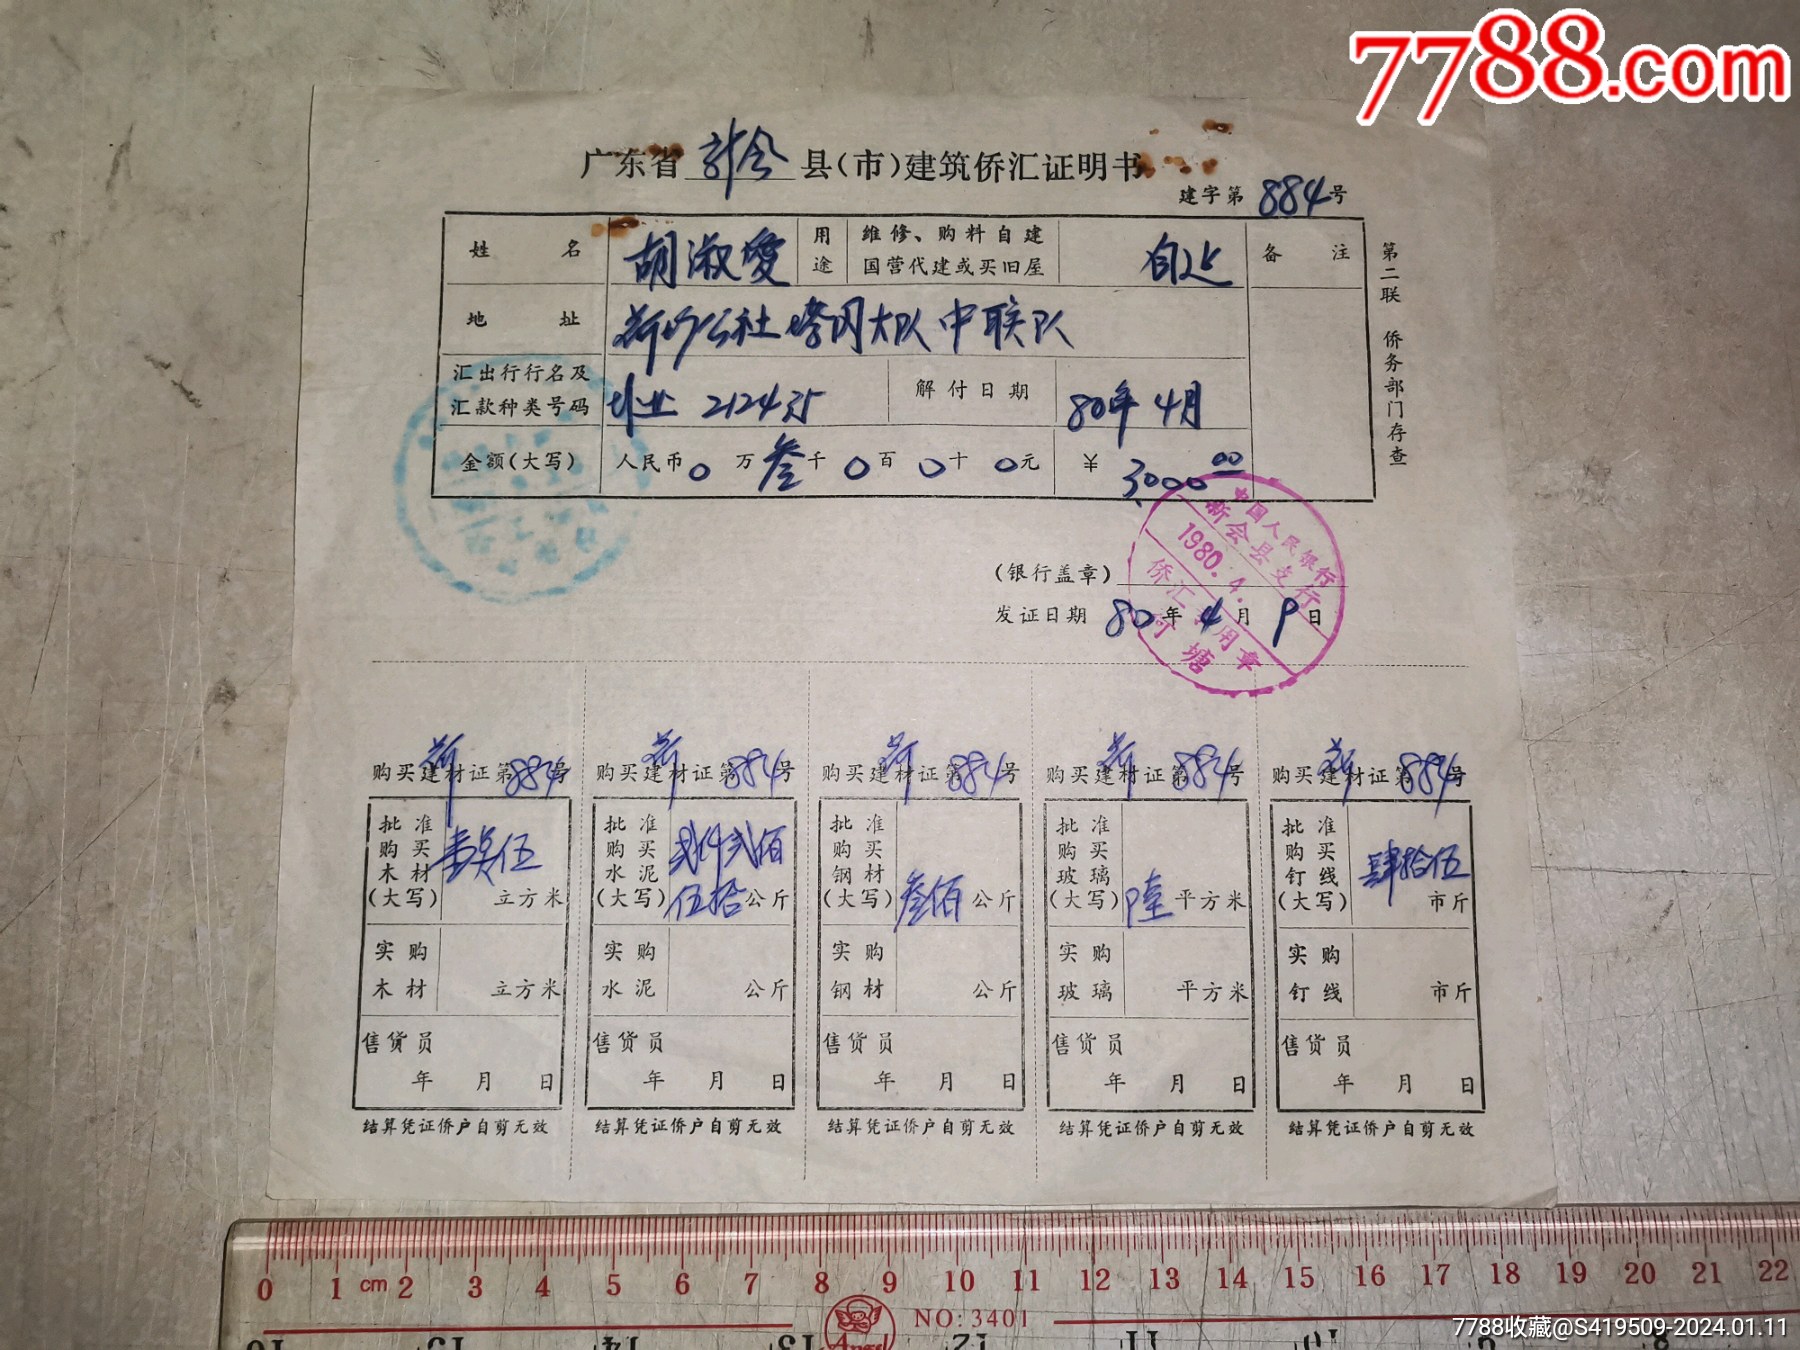 7788.com
广东省新会县(市)建筑侨汇证明书
建字第884号
姓名 胡淑爱 用途 维修、购料自建国营代建或买旧屋 自建 备注
地址 荷公社塔冈大队中联队
汇出行行名及汇款种类号码 212435 解付日期 80年4月
金额(大写) 人民币0万叁千0百0十0元 ¥3000.00
第二联 侨务部门存查
中国人民银行
新会县支行
1980.4.
侨汇专用章
荷塘
(银行盖章)
发证日期 80年4月9日
购买建材证第884号 荷
批准购买木材(大写) 伍 立方米
实购木材 立方米
售货员
年 月 日
结算凭证侨户自剪无效
购买建材证第884号 荷
批准购买水泥(大写) 贰仟贰佰伍拾公斤
实购水泥 公斤
售货员
年 月 日
结算凭证侨户自剪无效
购买建材证第884号 荷
批准购买钢材(大写) 叁佰公斤
实购钢材 公斤
售货员
年 月 日
结算凭证侨户自剪无效
购买建材证第884号 荷
批准购买玻璃(大写) 陆平方米
实购玻璃 平方米
售货员
年 月 日
结算凭证侨户自剪无效
购买建材证第884号 荷
批准购买钉线(大写) 肆拾伍市斤
实购钉线 市斤
售货员
年 月 日
结算凭证侨户自剪无效
0 1 cm 2 3 4 5 6 7 8 9 10 11 12 13 14 15 16 17 18 19 20 21 22
NO:3401
Angel
7788收藏@S419509-2024.01.11